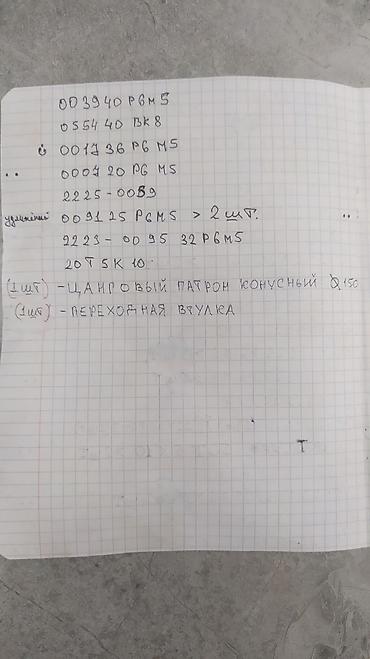 003940 Р6М5
055440 ВК8
001736 Р6 М5
000720 Р6 М5
2225-0059
009125 Р6М5 > 2 шт.
2223-0095 32 Р6М5
20 Т5К10
(1шт) - ЦАНГОВЫЙ ПАТРОН КОНУСНЫЙ 150
(1шт) - ПЕРЕХОДНАЯ ВТУЛКА
Т